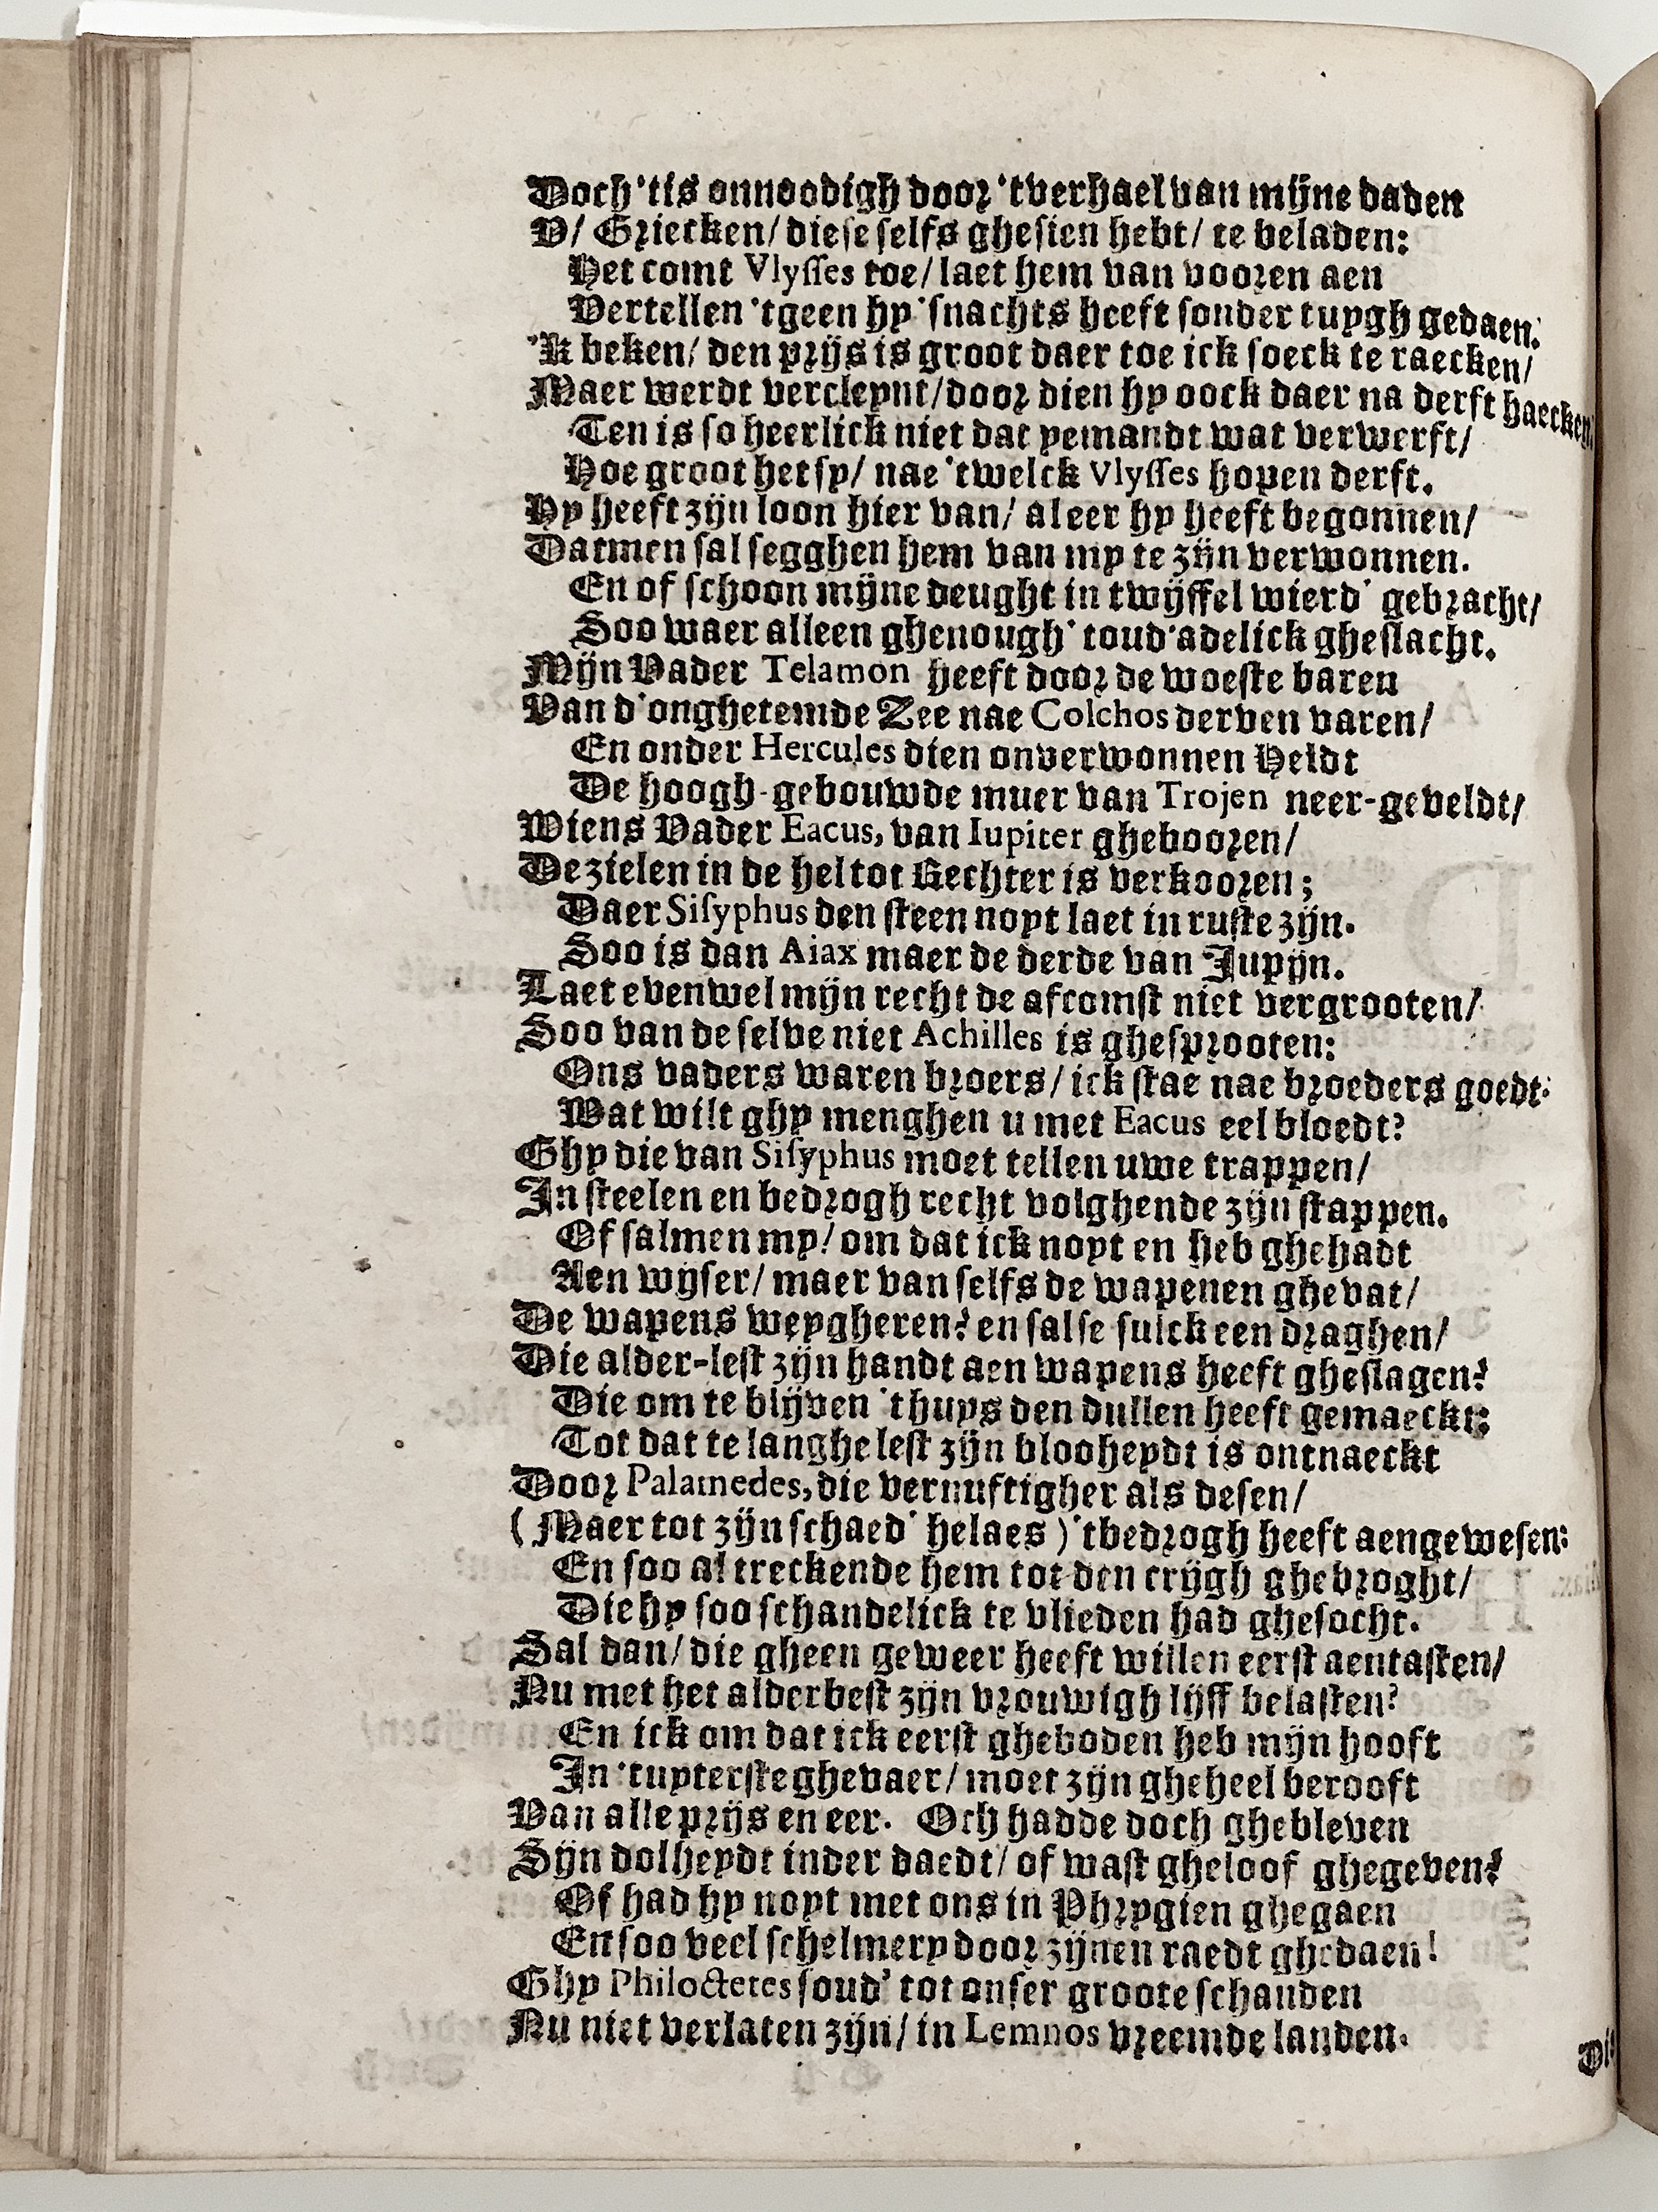 Doch 'tis onnoodigh door 'tverhael van mijne daden
V/ Griecken/ diese selfs ghesien hebt/ te beladen:
Het comt Vlysses toe/ laet hem van vooren aen
Vertellen 'tgeen hy 'snachts heeft sonder tuygh gedaen.
'Ik beken/ den prijs is groot daer toe ick soeck te raecken/
Maer werdt vercleynt/ door dien hy oock daer na derft haecken:
Ten is so heerlick niet dat yemandt wat verwerft/
Hoe groot het sy/ nae 'twelck Vlysses hopen derft.
Hy heeft zijn loon hier van/ al eer hy heeft begonnen/
Datmen sal segghen hem van my te zijn verwonnen.
En of schoon mijne deught in twijffel wierd' gebracht/
Soo waer alleen ghenough' toud'adelick gheslacht.
Mijn Vader Telamon heeft door de woeste baren
Van d'onghetemde Zee nae Colchos derven varen/
En onder Hercules dien onverwonnen Heldt
De hoogh-gebouwde muer van Trojen neer-geveldt/
Wiens Vader Eacus, van Iupiter ghebooren/
De zielen in de hel tot Rechter is verkooren;
Daer Sisyphus den steen noyt laet in ruste zijn.
Soo is dan Aiax maer de derde van Jupijn.
Laet evenwel mijn recht de afcomst niet vergrooten/
Soo van de selve niet Achilles is ghesprooten:
Ons vaders waren broers/ ick stae nae broeders goedt.
Wat wilt ghy menghen u met Eacus eel bloedt?
Ghy die van Sisyphus moet tellen uwe trappen/
In steelen en bedrogh recht volghende zijn stappen.
Of salmen my/ om dat ick noyt en heb ghehadt
Aen wyser/ maer van selfs de wapenen ghevat/
De wapens weygheren? en salse sulck een draghen/
Die alder-lest zijn handt aen wapens heeft gheslagen?
Die om te blijven 'thuys den dullen heeft gemaeckt:
Tot dat te langhe lest zijn blooheydt is ontnaeckt
Door Palamedes, die vernuftigher als desen/
( Maer tot zijn schaed' helaes ) 'tbedrogh heeft aengewesen:
En soo al treckende hem tot den crijgh ghebroght/
Die hy soo schandelick te vlieden had ghesocht.
Sal dan/ die gheen geweer heeft willen eerst aentasten/
Nu met het alderbest zijn vrouwigh lijff belasten?
En ick om dat ick eerst gheboden heb mijn hooft
In 'tuyterste ghevaer/ moet zijn gheheel berooft
Van alle prijs en eer. Och hadde doch ghebleven
Sijn dolheydt inder daedt/ of wast gheloof ghegeven?
Of had hy noyt met ons in Phrygien ghegaen
En soo veel schelmery door zijnen raedt ghedaen!
Ghy Philoctetes soud' tot onser groote schanden
Nu niet verlaten zijn/ in Lemnos vreemde landen.